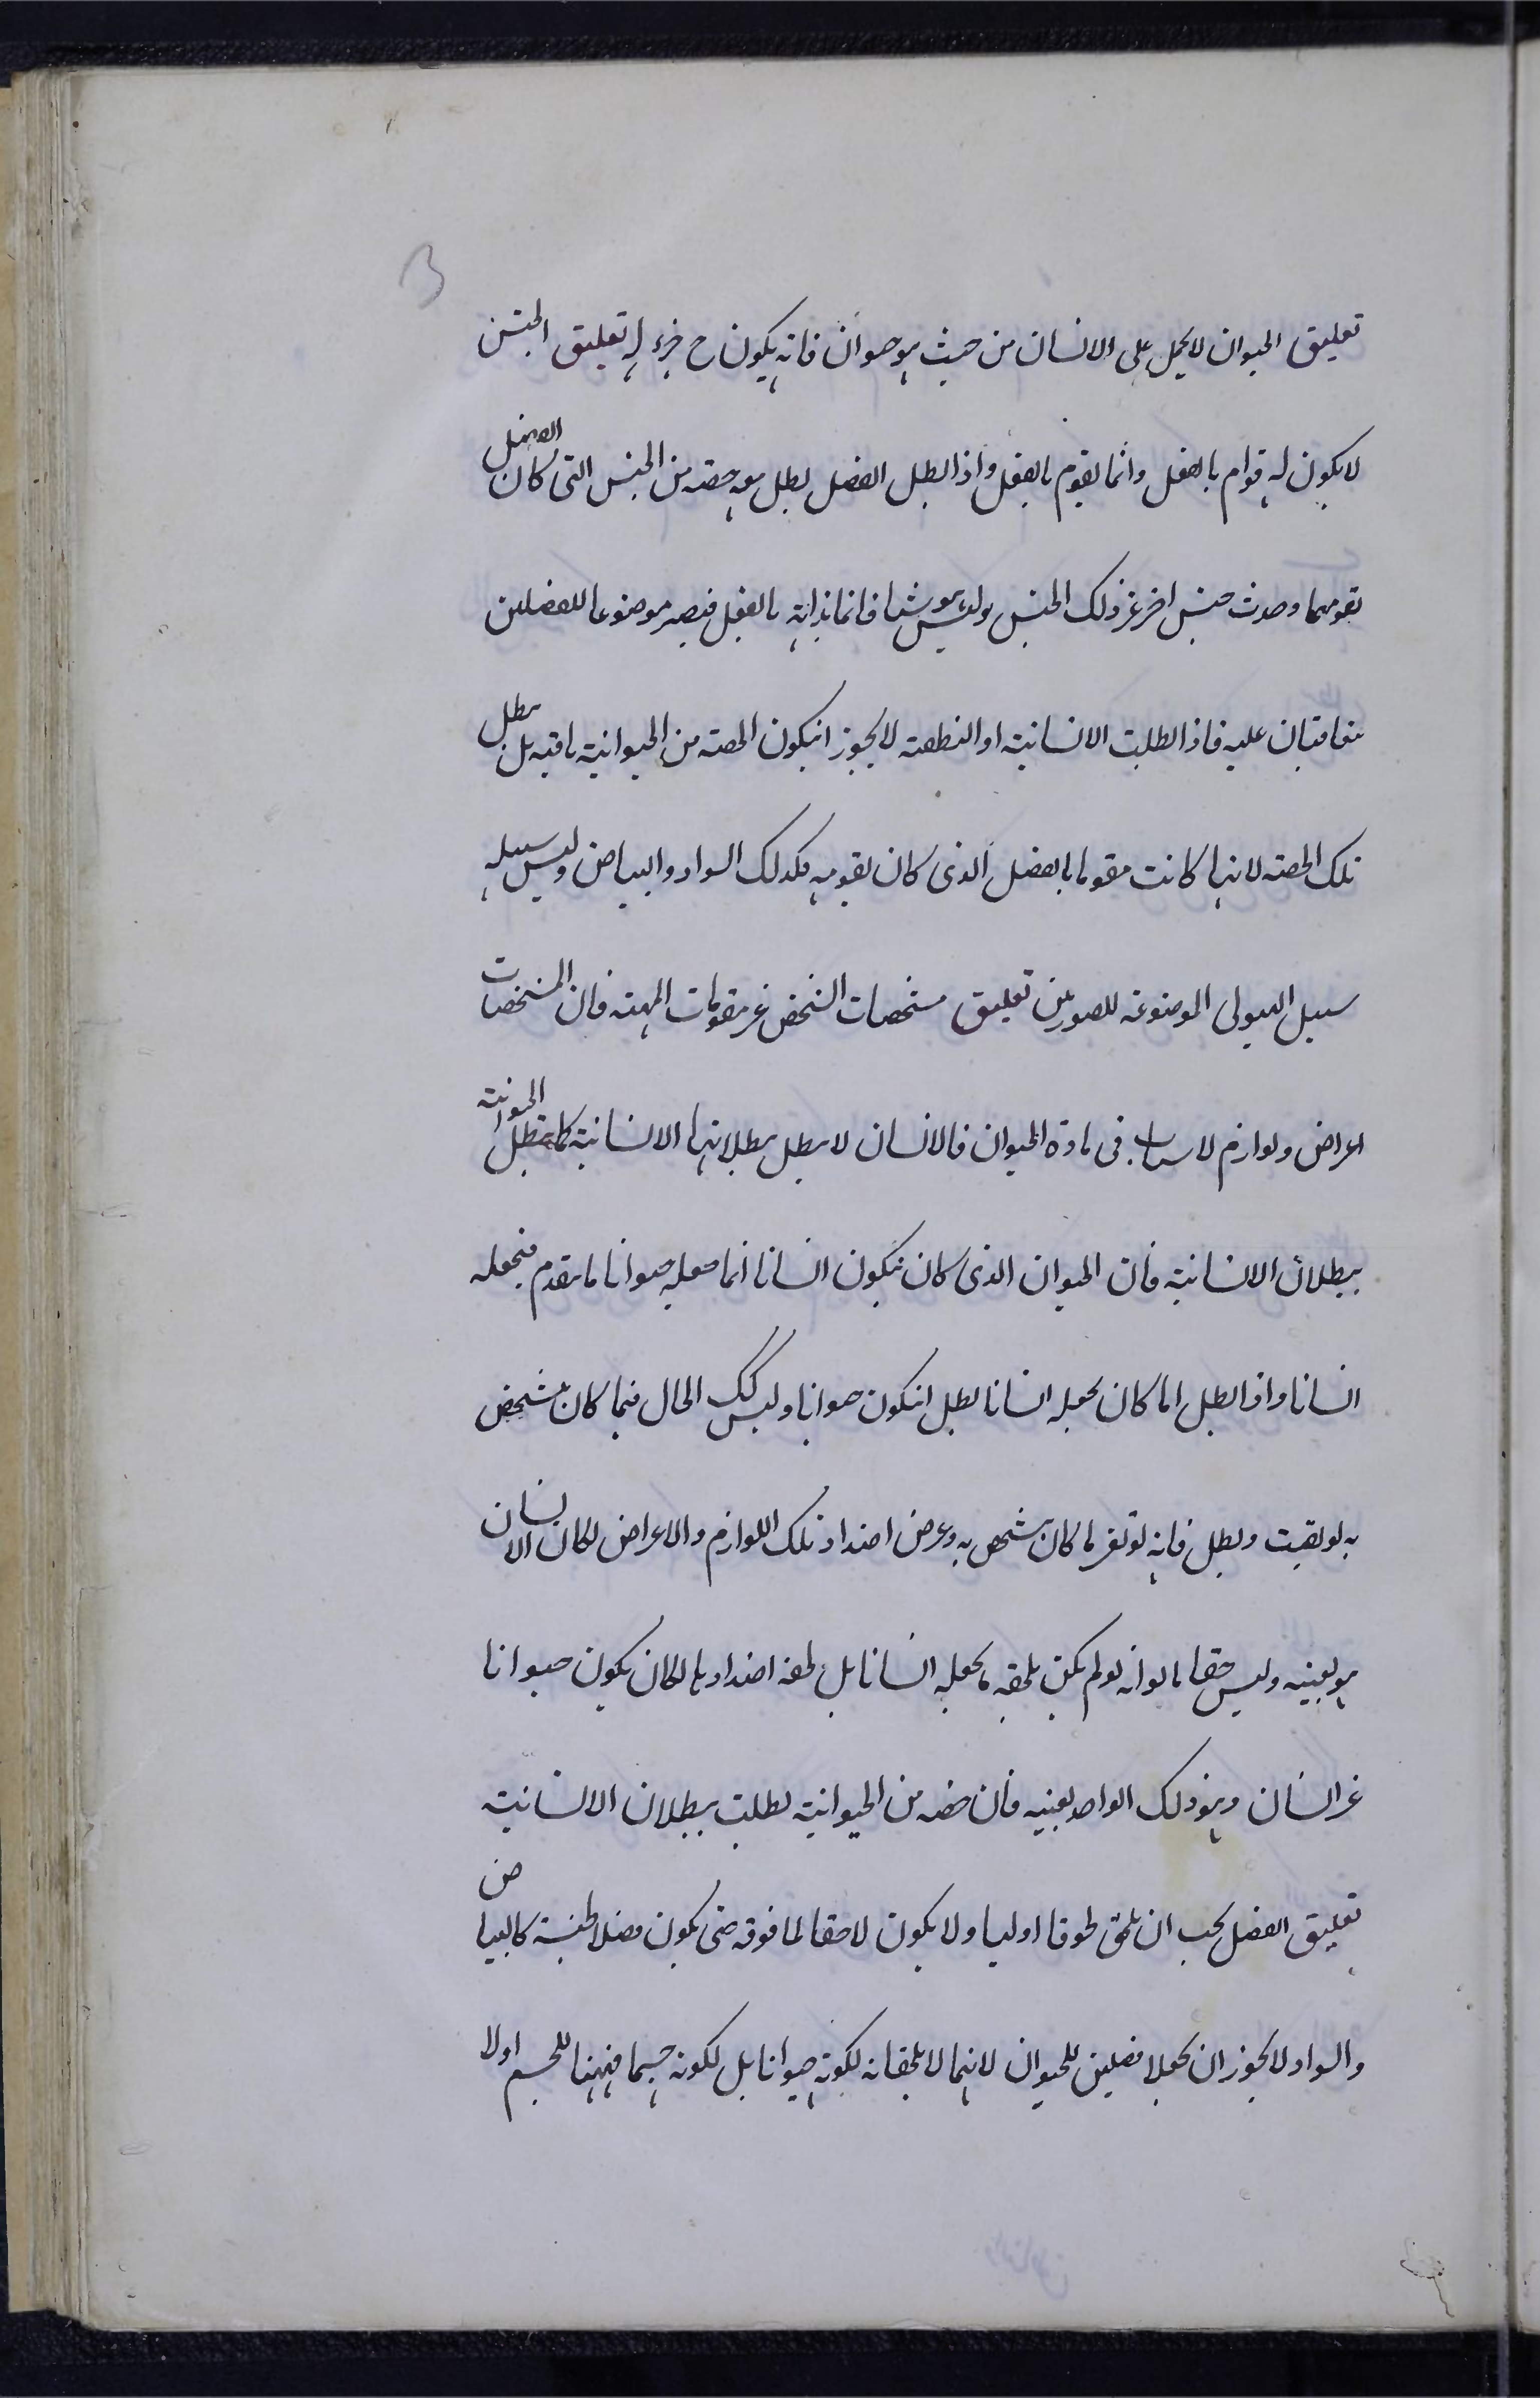 تعليق الحيوان لا يحمل على الانسان من حيث هو حيوان فانه يكون ح جزء له تعليق الجنس
لا يكون له قوام بالفعل وانما يقوم بالفعل واذا بطل الفصل بطل معه حصته من الجنس التى كان الفصل
يقومها وحدث جنس اخر غر ذلك الجنس وليس هو شيا قائما بذاته بالفعل فيصير موضوعا للفصلين
يتعاقبان عليه فاذا بطلت الانسانية او النطفة لا يجوز انيكون الحصة من الحيوانية باقيه بل يبطل
تلك الحصة لانها كانت مقوما بالفصل الذى كان يقومه فكذلك السواد والبياض وليس سبيله
سبيل الهيولى الموضوعة للصورتين تعليق مشخصات الشخص غر مقومات المهية فان المشخصات
اعراض ولوازم لاسباب فى مادة الحيوان فالانسان لا يبطل ببطلانها الانسانية كما يبطل الحيوانية
ببطلان الانسانية فان الحيوان الذى كان يتكون انسانا انما جعله حيوانا ما يتقدم فيجعله
انسانا واذا بطل ما كان يجعله انسانا بطل انيكون حيوانا وليس كك الحال فيما كان يتشخص
به لو بقيت وبطل فانه لو تغر ما كان يتشخص به وعرض اضداد تلك اللوازم والاعراض لكان الانسان
هو بعينه وليس حقا ما لو انه لو لم يكن يلحقه ما يجعله انسانا بل لحقه اضدادها لكان يكون حيوانا
غر انسان وهو ذلك الواحد بعينه فان حصه من الحيوانية بطلت ببطلان الانسانية
تعليق الفصل يجب ان يلحق لحوقا اوليا ولا يكون لاحقا لما فوقه حتى يكون فصلا لجنسه كالبياض
والسواد لا يجوز ان يجعلا فصلين للحيوان لانهما لا يلحقانه لكونه حيوانا بل لكونه جسما فهما للجسم اولا